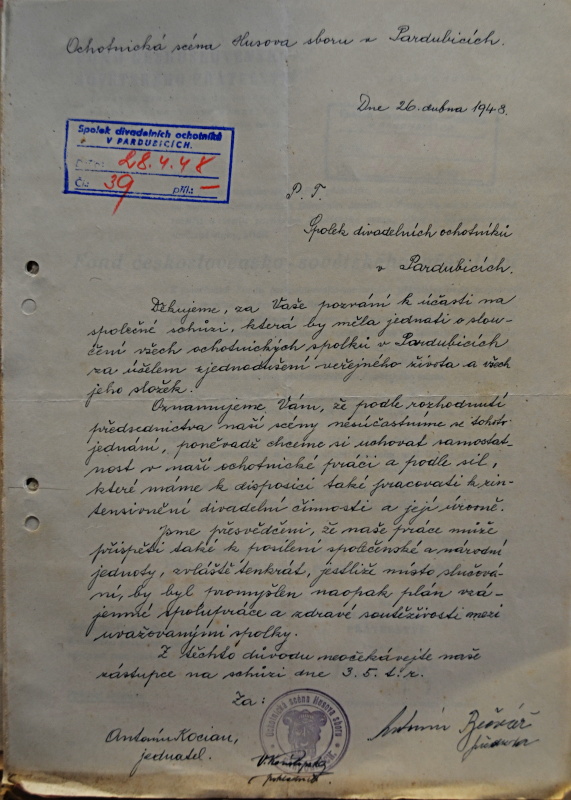 Ochotnická scéna Husova sboru v Pardubicích.
Dne 26. dubna 1948.
Spolek divadelních ochotníků
V PARDUBICÍCH.
Došlo: 28.4.48
Čís. 39 příl.: —
P. T.
Spolek divadelních ochotníků
v Pardubicích.
Děkujeme, za Vaše pozvání k účasti na
společné schůzi, která by měla jednati o slou-
čení všech ochotnických spolků v Pardubicích
za účelem zjednodušení veřejného života a všech
jeho složek.
Oznamujeme Vám, že podle rozhodnutí
předsednictva naší scény nesúčastníme se tohoto
jednání, poněvadž chceme si uchovat samostat-
nost v naší ochotnické práci a podle sil,
které máme k disposici také pracovati k zin-
tensivnění divadelní činnosti a její úrovně.
Jsme přesvědčeni, že naše práce může
přispěti také k posílení společenské a národní
jednoty, zvláště tenkrát, jestliže místo slučová-
ní, by byl promyšlen naopak plán vzá-
jemné spolupráce a zdravé soutěživosti mezi
uvažovanými spolky.
Z těchto důvodu neočekávejte naše
zástupce na schůzi dne 3. 5. t. r.
Za:
Ochotnická scéna Husova sboru
Antonín Kocian,
jednatel.
Antonín Bečvář